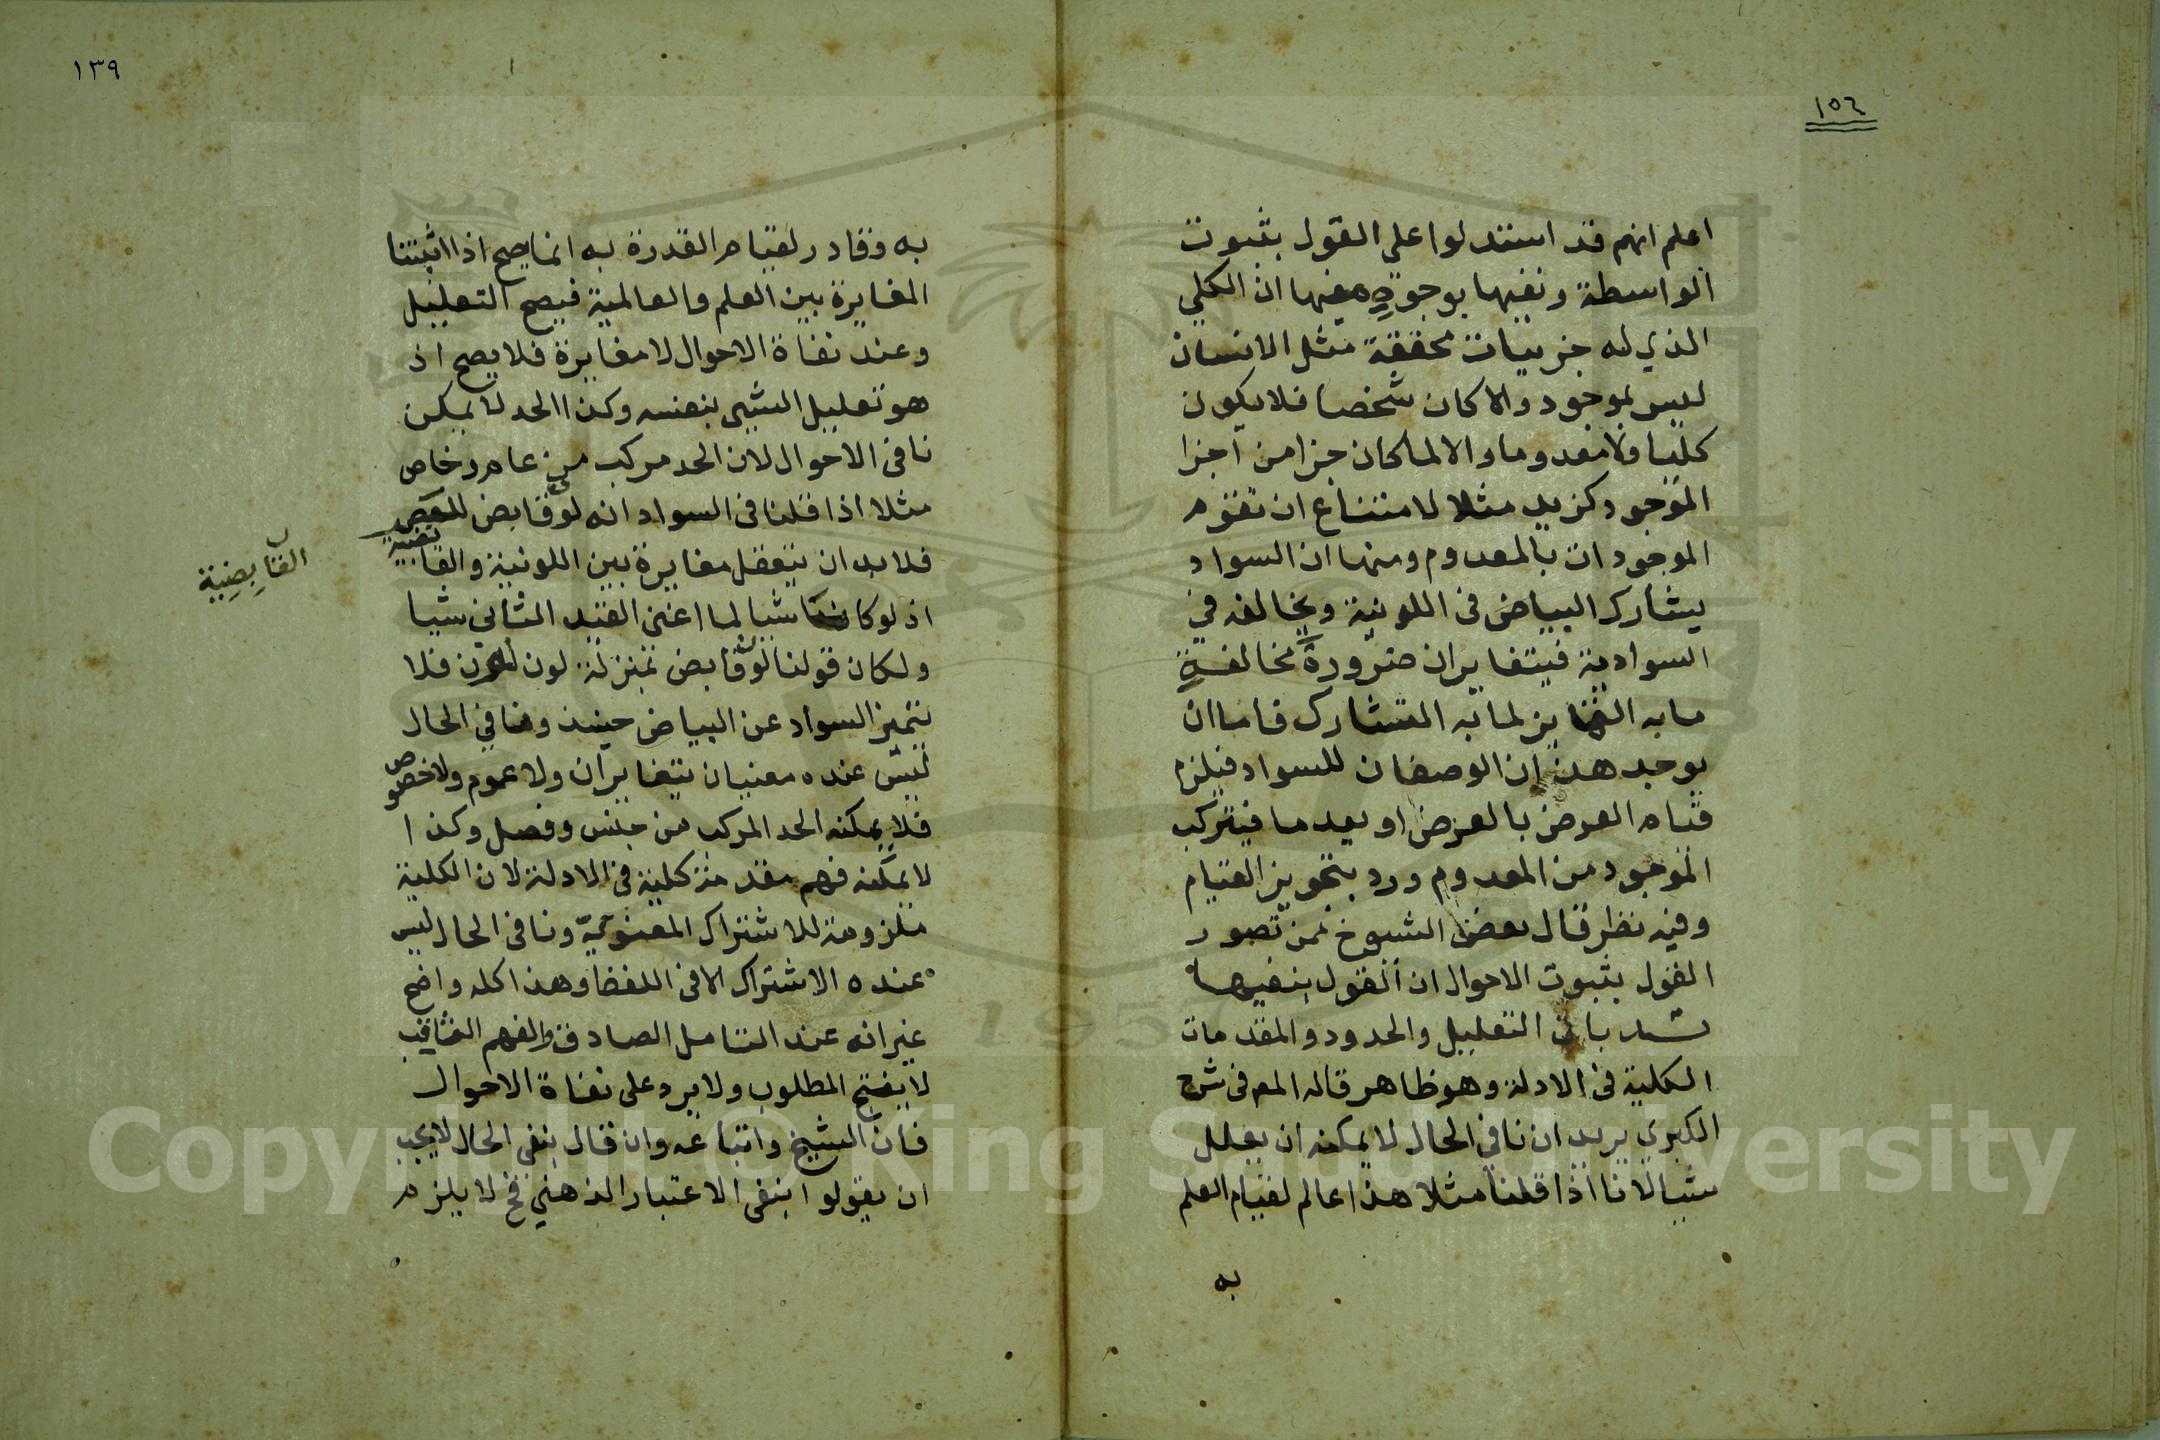 ١٥٦
اعلم انهم قد استدلوا على القول بثبوت
الواسطة ونفيها بوجوه منها ان الكلي
الذي له جزييات محققة مثل الانسان
ليس بموجود والا كان شخصا فلا يكون
كليا ولا معدوما والا لما كان جزا من اجزا
الموجود كزيد مثلا لامتناع ان تقوم
الموجودات بالمعدوم ومنها ان السواد
يشارك البياض في اللونية ويخالفه في
السوادية فيتغايران ضرورة مخالفة
ما به التمايز لما به التشارك فاما ان
يوجد هذان الوصفان للسواد فيلزم
قيام العرض بالعرض او يعدما فيتركب
الموجود من المعدوم ورد بتجويز القيام
وفيه نظر قال بعض الشيوخ فمن تصور
القول بثبوت الاحوال ان القول بنفيها
يسد باب التعليل والحدود والمقدمات
الكلية في الادلة وهو ظاهر قاله المص في شرح
الكبري يريد ان نافي الحال لا يمكنه ان يعلل
شيا لانا اذا قلنا مثلا هذا عالم لقيام العلم
به
١٣٩
به وقادر لقيام القدرة به انما يصح اذا اثبتنا
المغايرة بين العلم والعالمية فيصح التعليل
وعند نفاة الاحوال لا مغايرة فلا يصح اذ
هو تعليل الشيى بنفسه وكذا الحد لا يمكن
نافي الاحوال لان الحد مركب من عام وخاص
مثلا اذا قلنا في السواد انه لون قابض للبصر
فلا بد ان يتعقل مغايرة بين اللونية والقابضية
القابضية
اذ لو كانا شيا لما اغنى القيد الثاني شيا
ولكان قولنا لون قابض بمنزلة لون لون فلا
يتميز السواد عن البياض حينيذ ونافي الحال
ليس عنده معنيان يتغايران ولا عموم ولا خصوص
فلا يمكنه الحد المركب من جنس وفصل وكذا
لا يمكنه فهم مقدمة كلية في الادلة لان الكلية
ملزومة للاشتراك المعنوي ونافي الحال ليس
عنده الاشتراك الا في اللفظ وهذا كله واضح
غير انه عند التامل الصادق والفهم الثاقب
لا يفتح المطلوب ولا يرد على نفاة الاحوال
فان الشيخ واتباعه وان قال بنفي الحال لا يجب
ان يقولوا بنفي الاعتبار الذهني فح لا يلزم